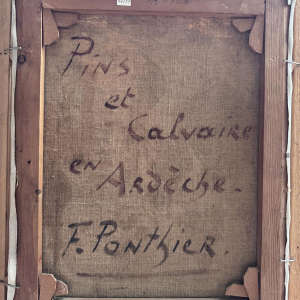 Pins
et
Calvaire
en Ardèche.
F. Ponthier.